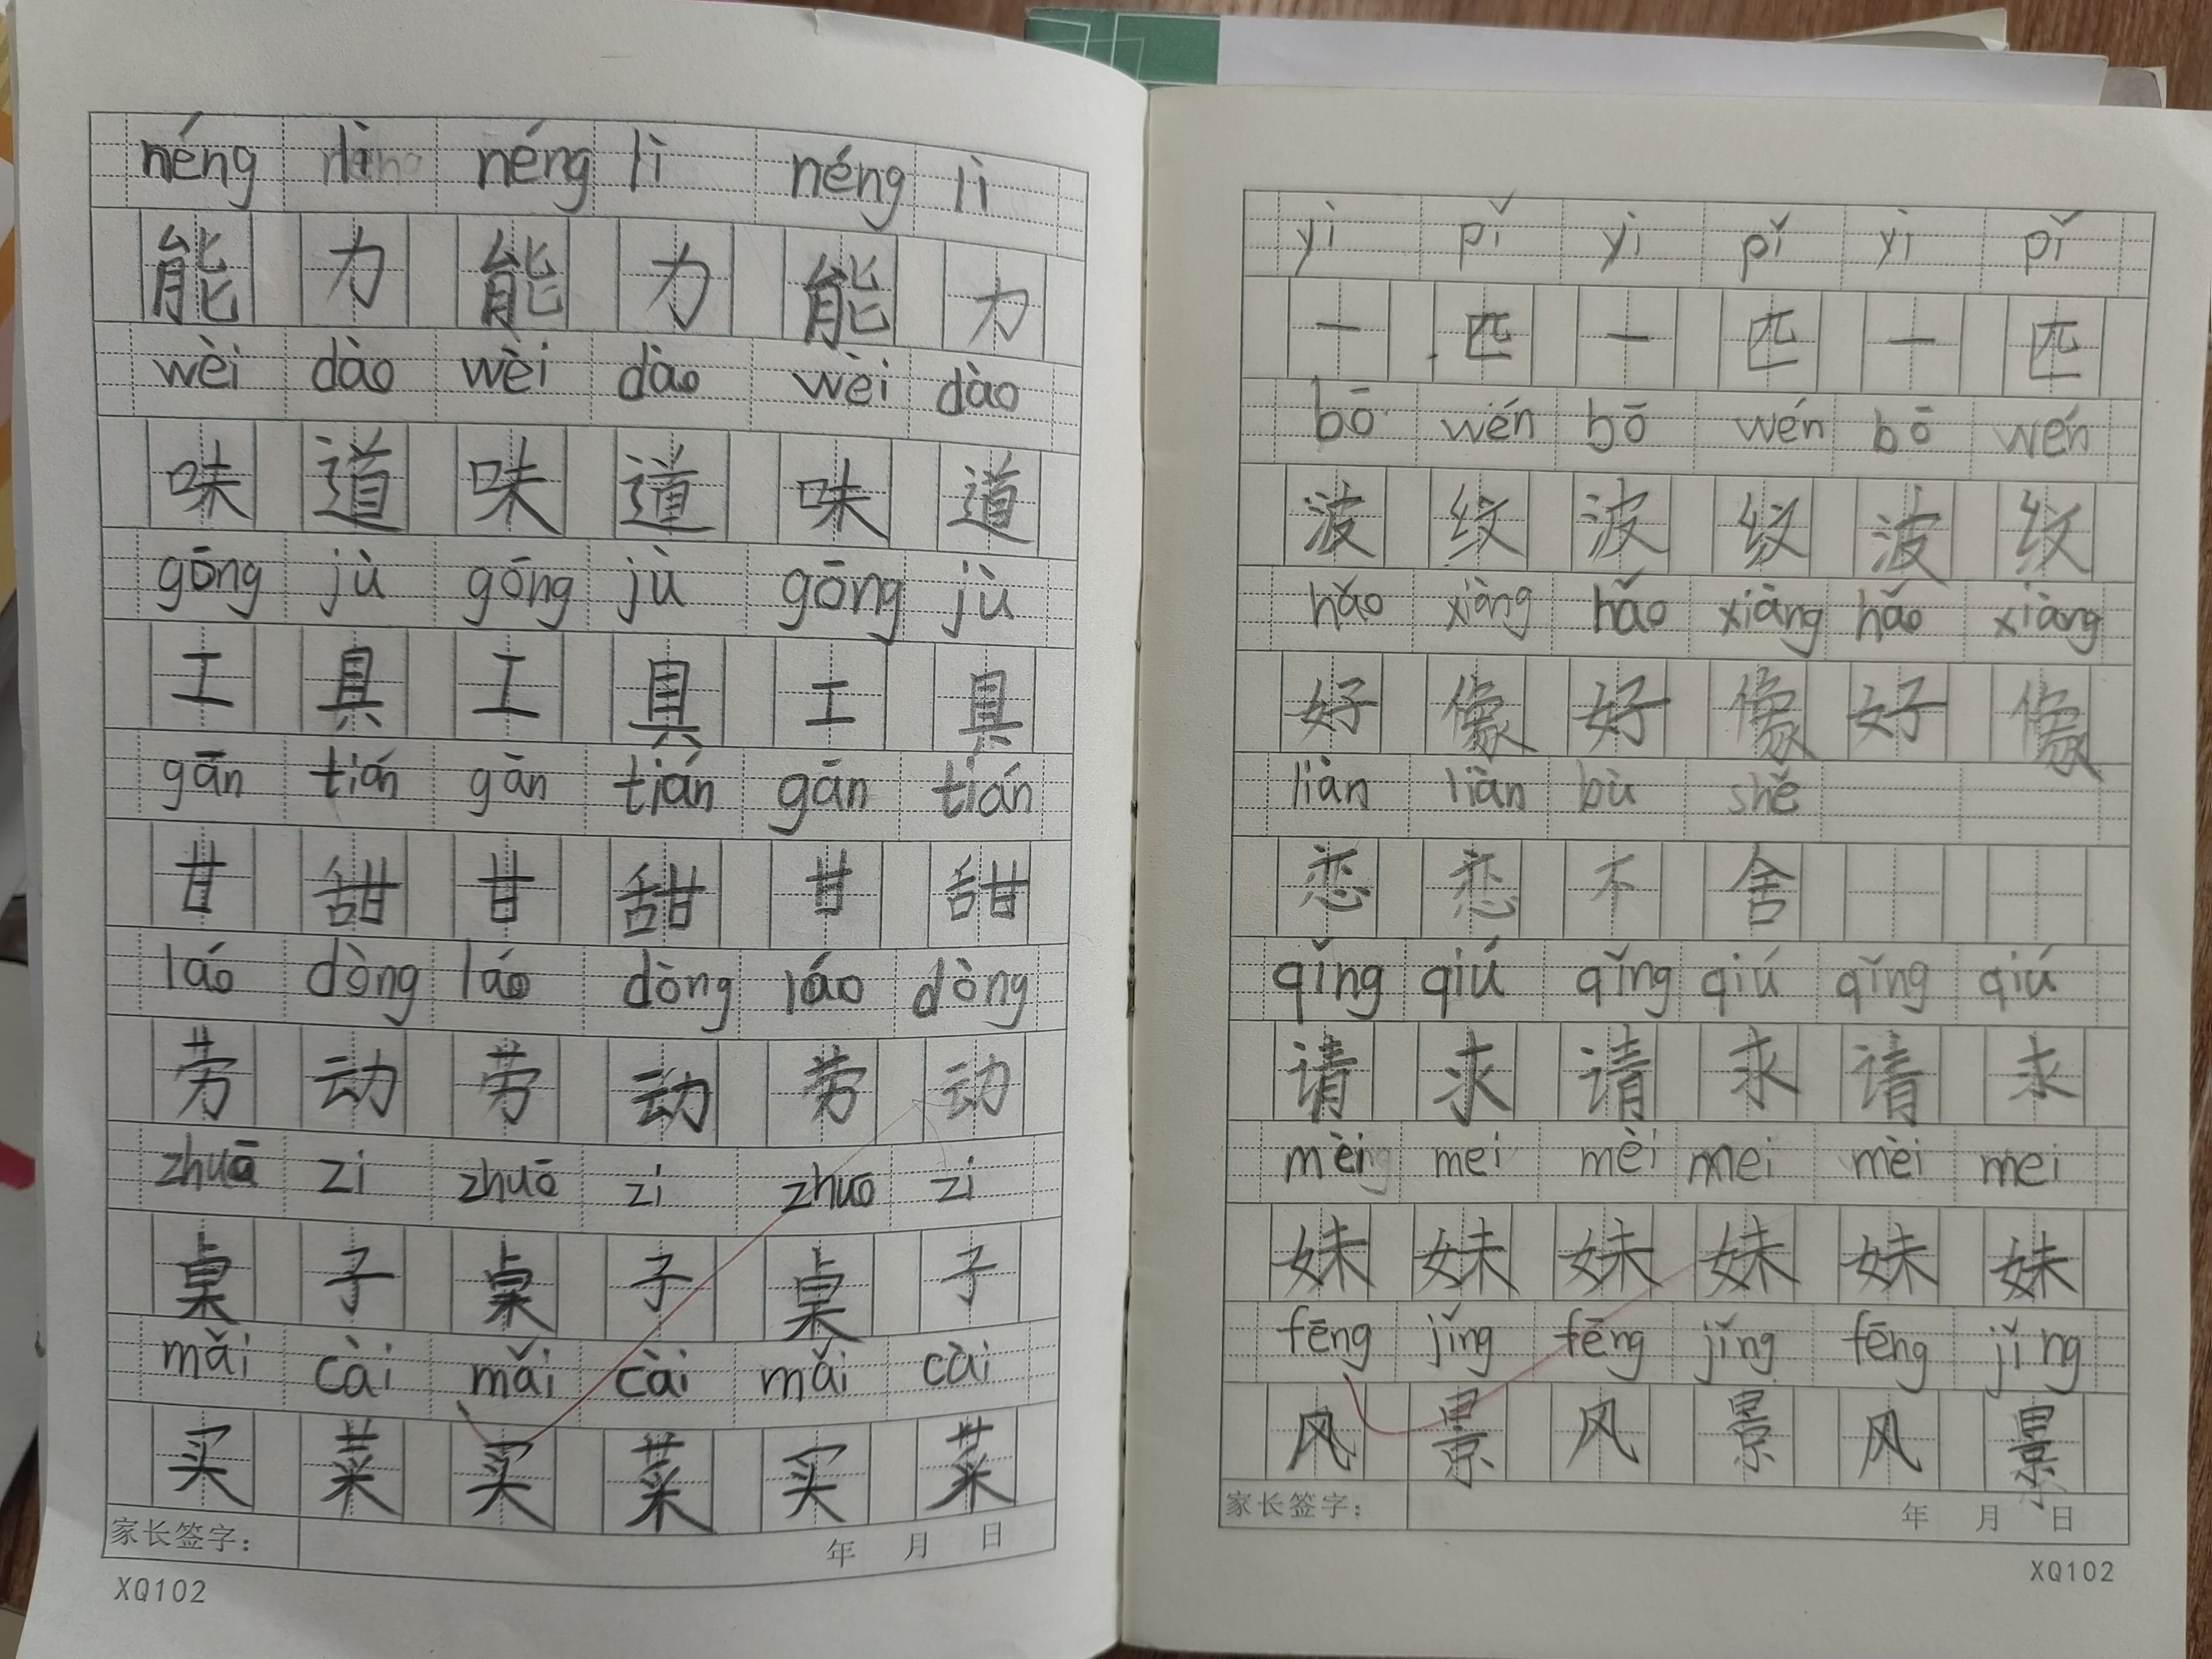 néng lì néng lì néng lì
能 力 能 力 能 力
wèi dào wèi dào wèi dào
味 道 味 道 味 道
gōng jù gōng jù gōng jù
工 具 工 具 工 具
gān tián gān tián gān tián
甘 甜 甘 甜 甘 甜
láo dòng láo dòng láo dòng
劳 动 劳 动 劳 动
zhuō zi zhuō zi zhuo zi
桌 子 桌 子 桌 子
mǎi cài mǎi cài mǎi cài
买 菜 买 菜 买 菜
家长签字： 年 月 日
XQ102
yì pǐ yì pǐ yì pǐ
一 匹 一 匹 一 匹
bō wén bō wén bō wén
波 纹 波 纹 波 纹
hǎo xiàng hǎo xiàng hǎo xiàng
好 像 好 像 好 像
liàn liàn bù shě
恋 恋 不 舍
qǐng qiú qǐng qiú qǐng qiú
请 求 请 求 请 求
mèi mei mèi mei mèi mei
妹 妹 妹 妹 妹 妹
fēng jǐng fēng jǐng fēng jǐng
风 景 风 景 风 景
家长签字： 年 月 日
XQ102